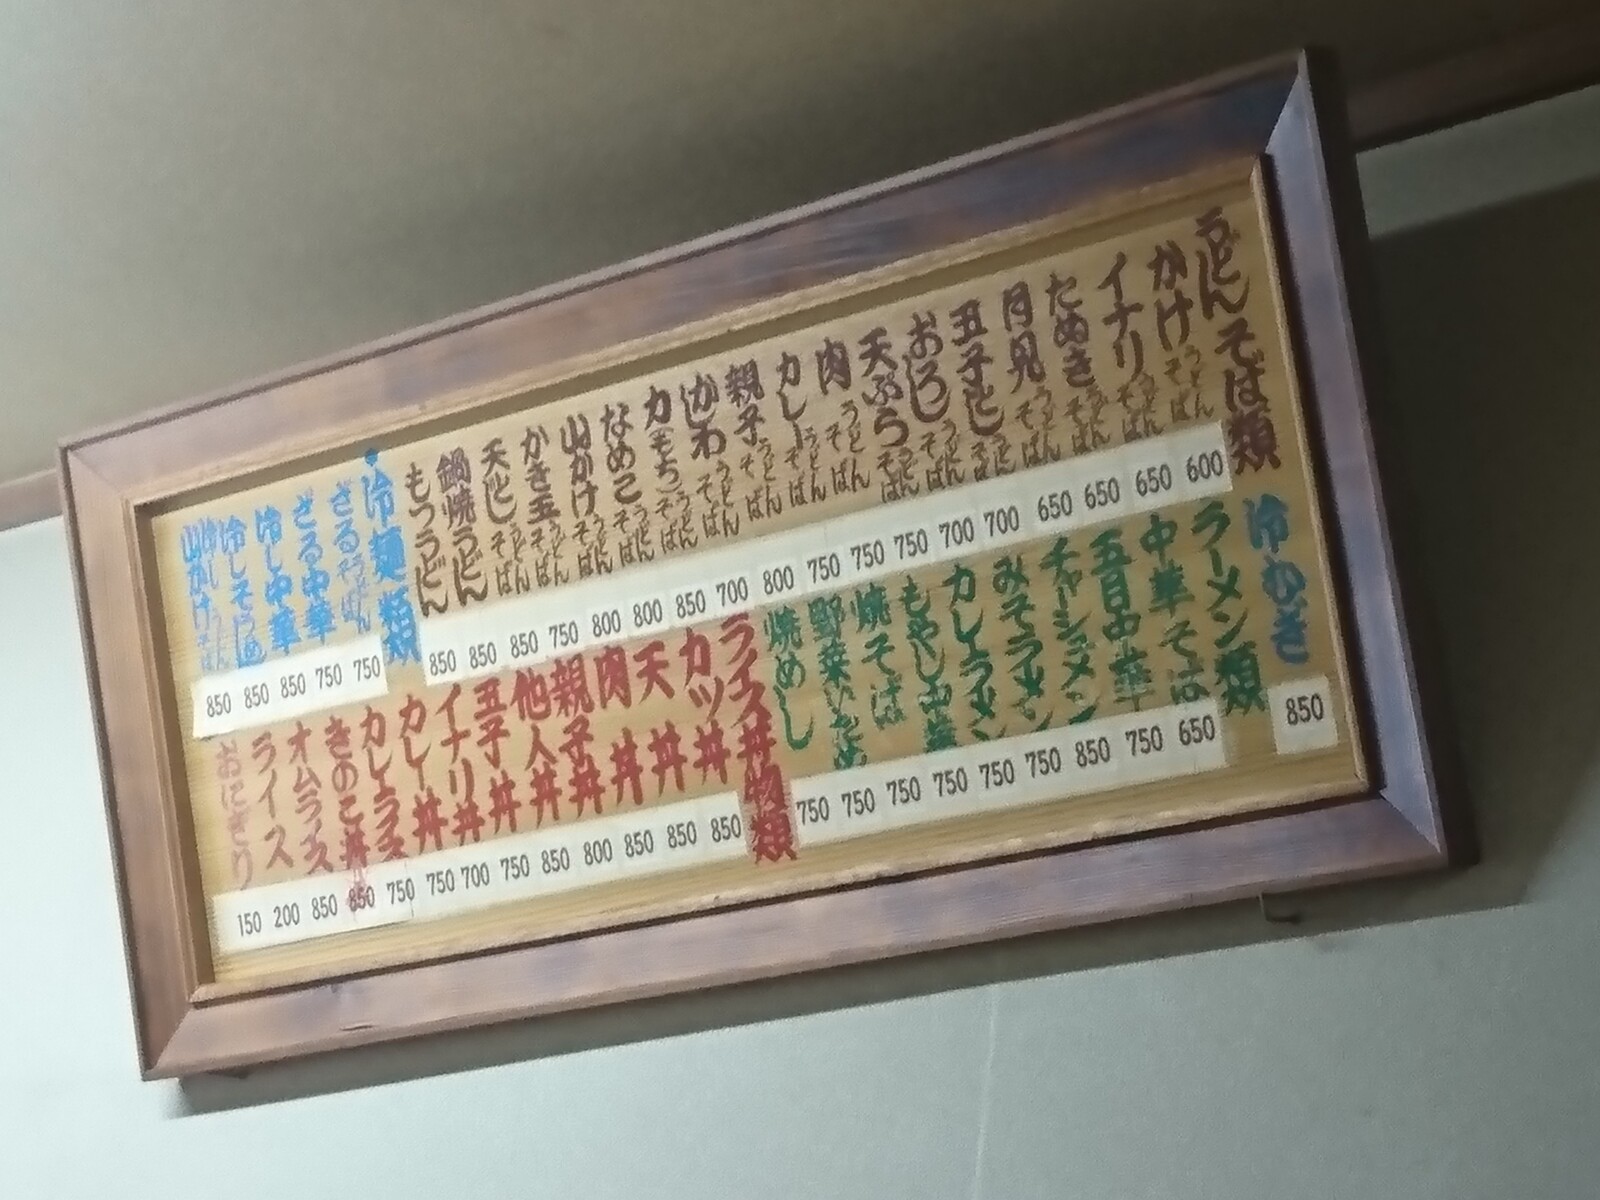 うどんそば類
かけ うどん そば 600
イナリ うどん そば 650
たぬき うどん そば 650
月見 うどん そば 650
玉子とじ うどん そば 700
おろし うどん そば 700
天ぷら うどん そば 750
肉 うどん そば 750
カレー うどん そば 750
親子 うどん そば 800
かしわ うどん そば 700
力(もち) うどん そば 850
なめこ うどん そば 800
山かけ うどん そば 800
かき玉 うどん そば 750
天とじ うどん そば 850
鍋焼うどん 850
もつうどん 850
冷麺類
ざる うどん そば 750
ざる中華 750
冷し中華 850
冷しそうめん 850
冷し山かけ うどん そば 850
冷むぎ 850
ラーメン類
中華そば 650
五目中華 750
チャーシューメン 850
みそラーメン 750
カレーラーメン 750
もやし中華 750
焼そば 750
野菜いため 750
焼めし 750
ライス丼物類
カツ丼 850
天丼 850
肉丼 850
親子丼 800
他人丼 850
玉子丼 750
イナリ丼 700
カレー丼 750
カレーライス 750
きのこ丼 850
オムライス 850
ライス 200
おにぎり 150